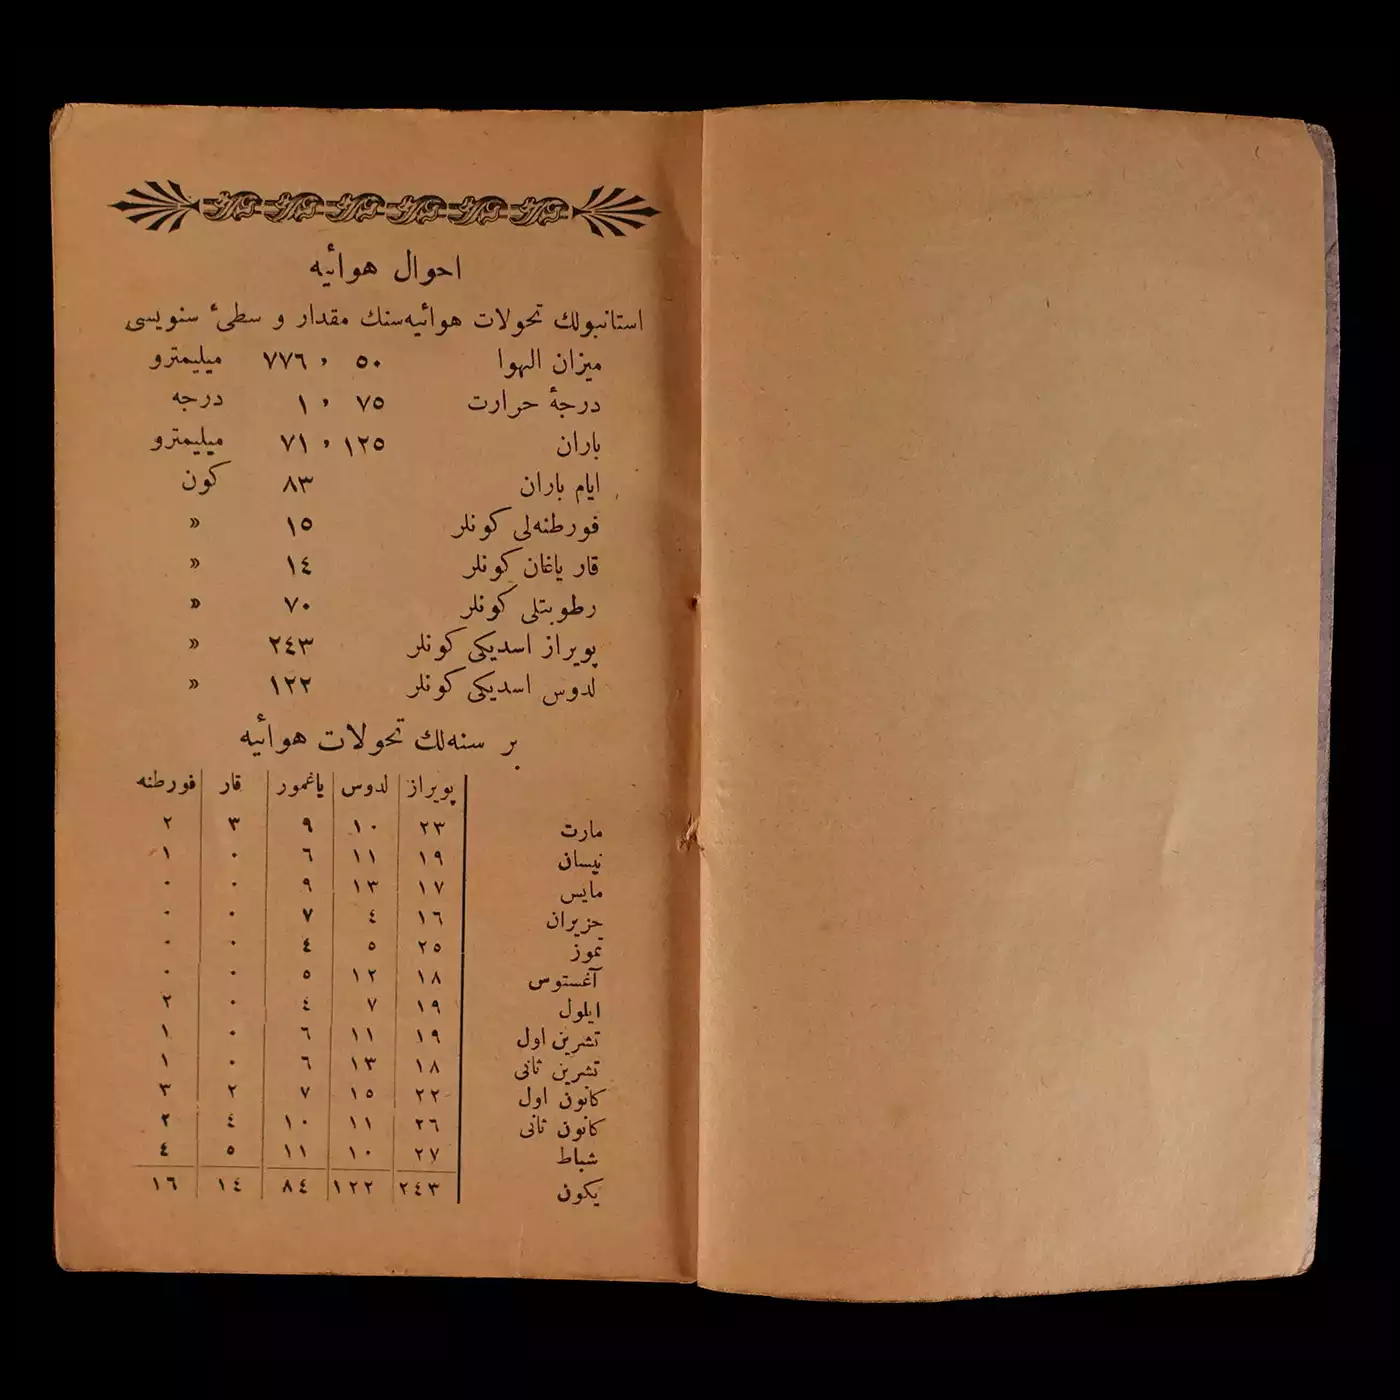 احوال هوائیه
استانبولك تحولات هوائیه‌سنك مقدار و سطیٔ سنویسی
میزان الهوا ٥٠ , ٧٧٦ میلیمترو
درجهٔ حرارت ٧٥ , ١ درجه
باران ١٢٥ , ٧١ میلیمترو
ایام باران ٨٣ كون
فورطنه‌لی كونلر ١٥ »
قار یاغان كونلر ١٤ »
رطوبتلی كونلر ٧٠ »
پویراز اسدیكی كونلر ٢٤٣ »
لدوس اسدیكی كونلر ١٢٢ »
بر سنه‌لك تحولات هوائیه
پویراز لدوس یاغمور قار فورطنه
مارت ٢٣ ١٠ ٩ ٣ ٢
نیسان ١٩ ١١ ٦ ٠ ١
مایس ١٧ ١٣ ٩ ٠ ٠
حزیران ١٦ ٤ ٧ ٠ ٠
تموز ٢٥ ٥ ٤ ٠ ٠
آغستوس ١٨ ١٢ ٥ ٠ ٠
ایلول ١٩ ٧ ٤ ٠ ٢
تشرین اول ١٩ ١١ ٦ ٠ ١
تشرین ثانی ١٨ ١٣ ٦ ٠ ١
كانون اول ٢٢ ١٥ ٧ ٢ ٣
كانون ثانی ٢٦ ١١ ١٠ ٤ ٢
شباط ٢٧ ١٠ ١١ ٥ ٤
یكون ٢٤٣ ١٢٢ ٨٤ ١٤ ١٦